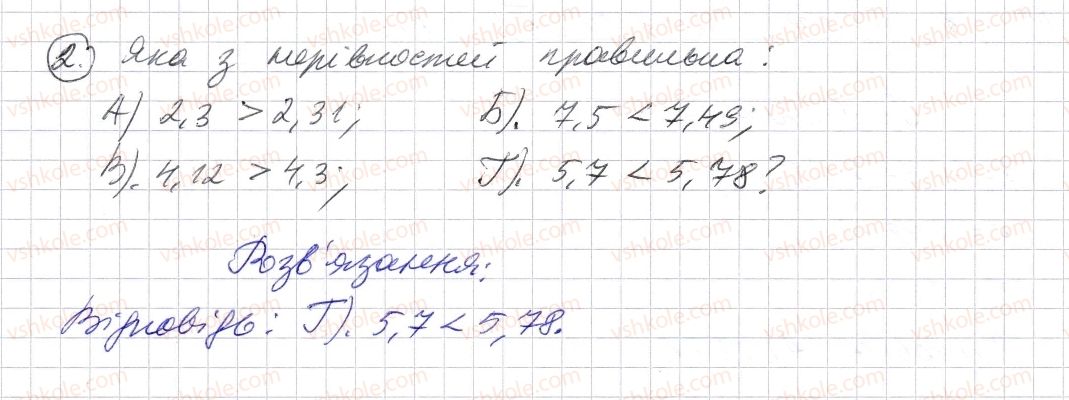 2. Яка з нерівностей правильна:
А) 2,3 > 2,31; Б). 7,5 < 7,49;
В). 4,12 > 4,3; Г). 5,7 < 5,78?
Розв'язання:
Відповідь: Г). 5,7 < 5,78.